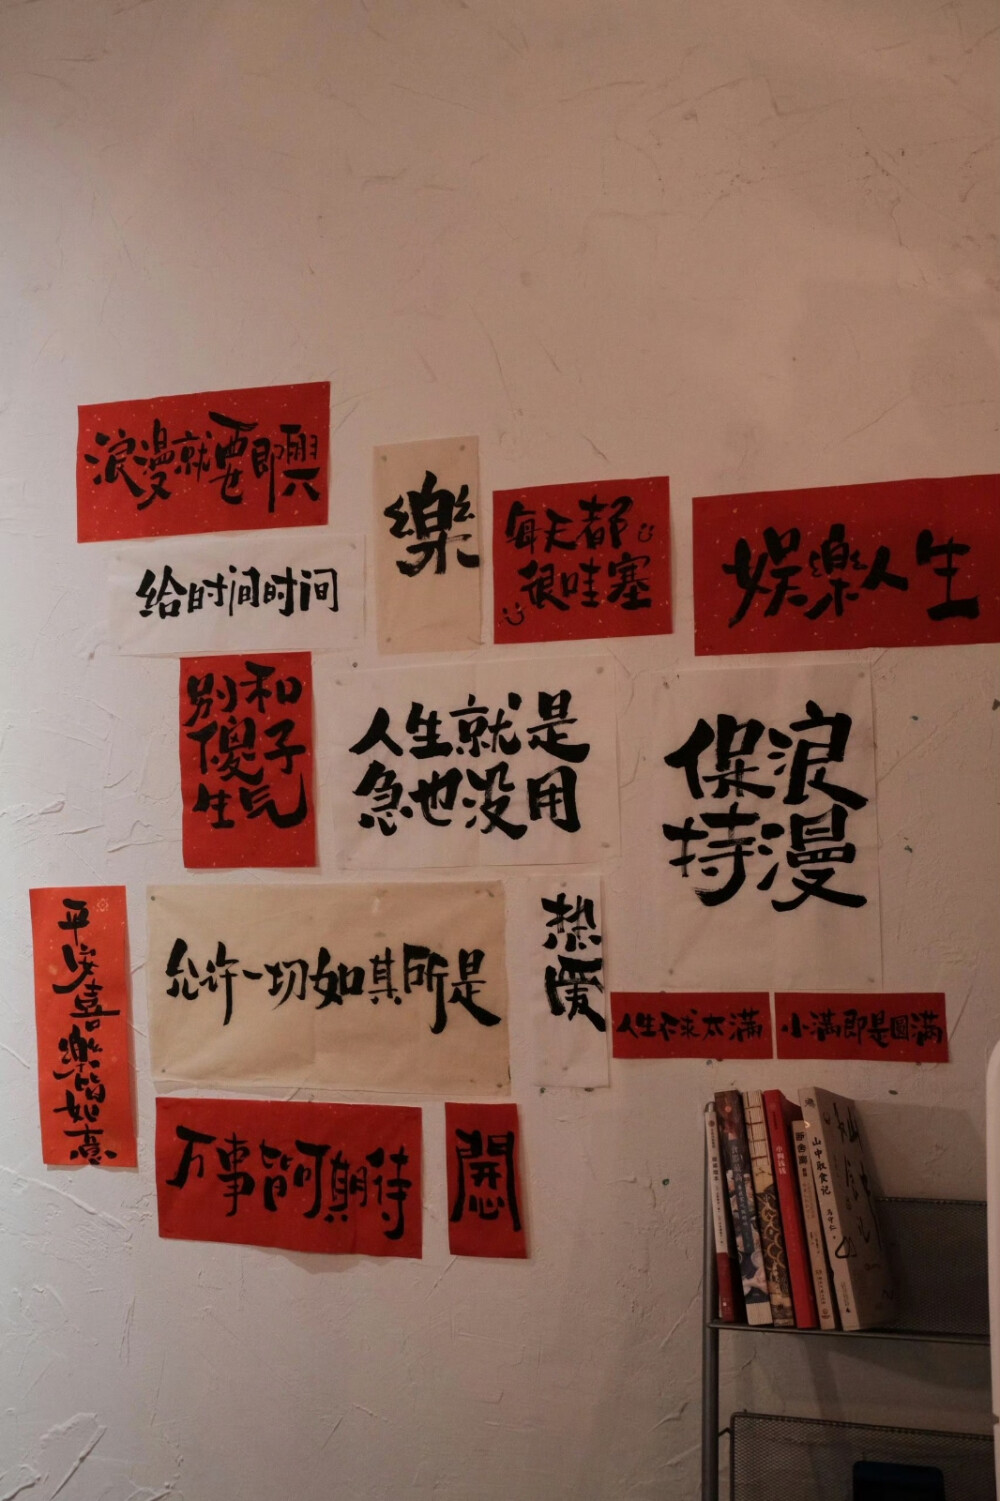 浪漫就要即興
樂
每天都
很哇塞
娱樂人生
给时间时间
别和
傻子
生气
人生就是
急也没用
保持
浪漫
平安喜樂皆如意
允许一切如其所是
热愛
人生不求太滿
小滿即是圓滿
万事皆可期待
断舍离
山中取食记